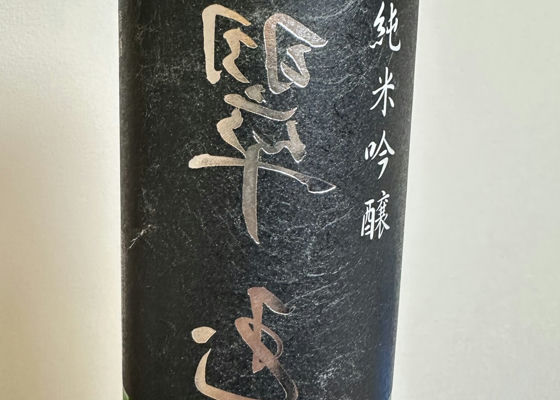 純米吟醸
翠